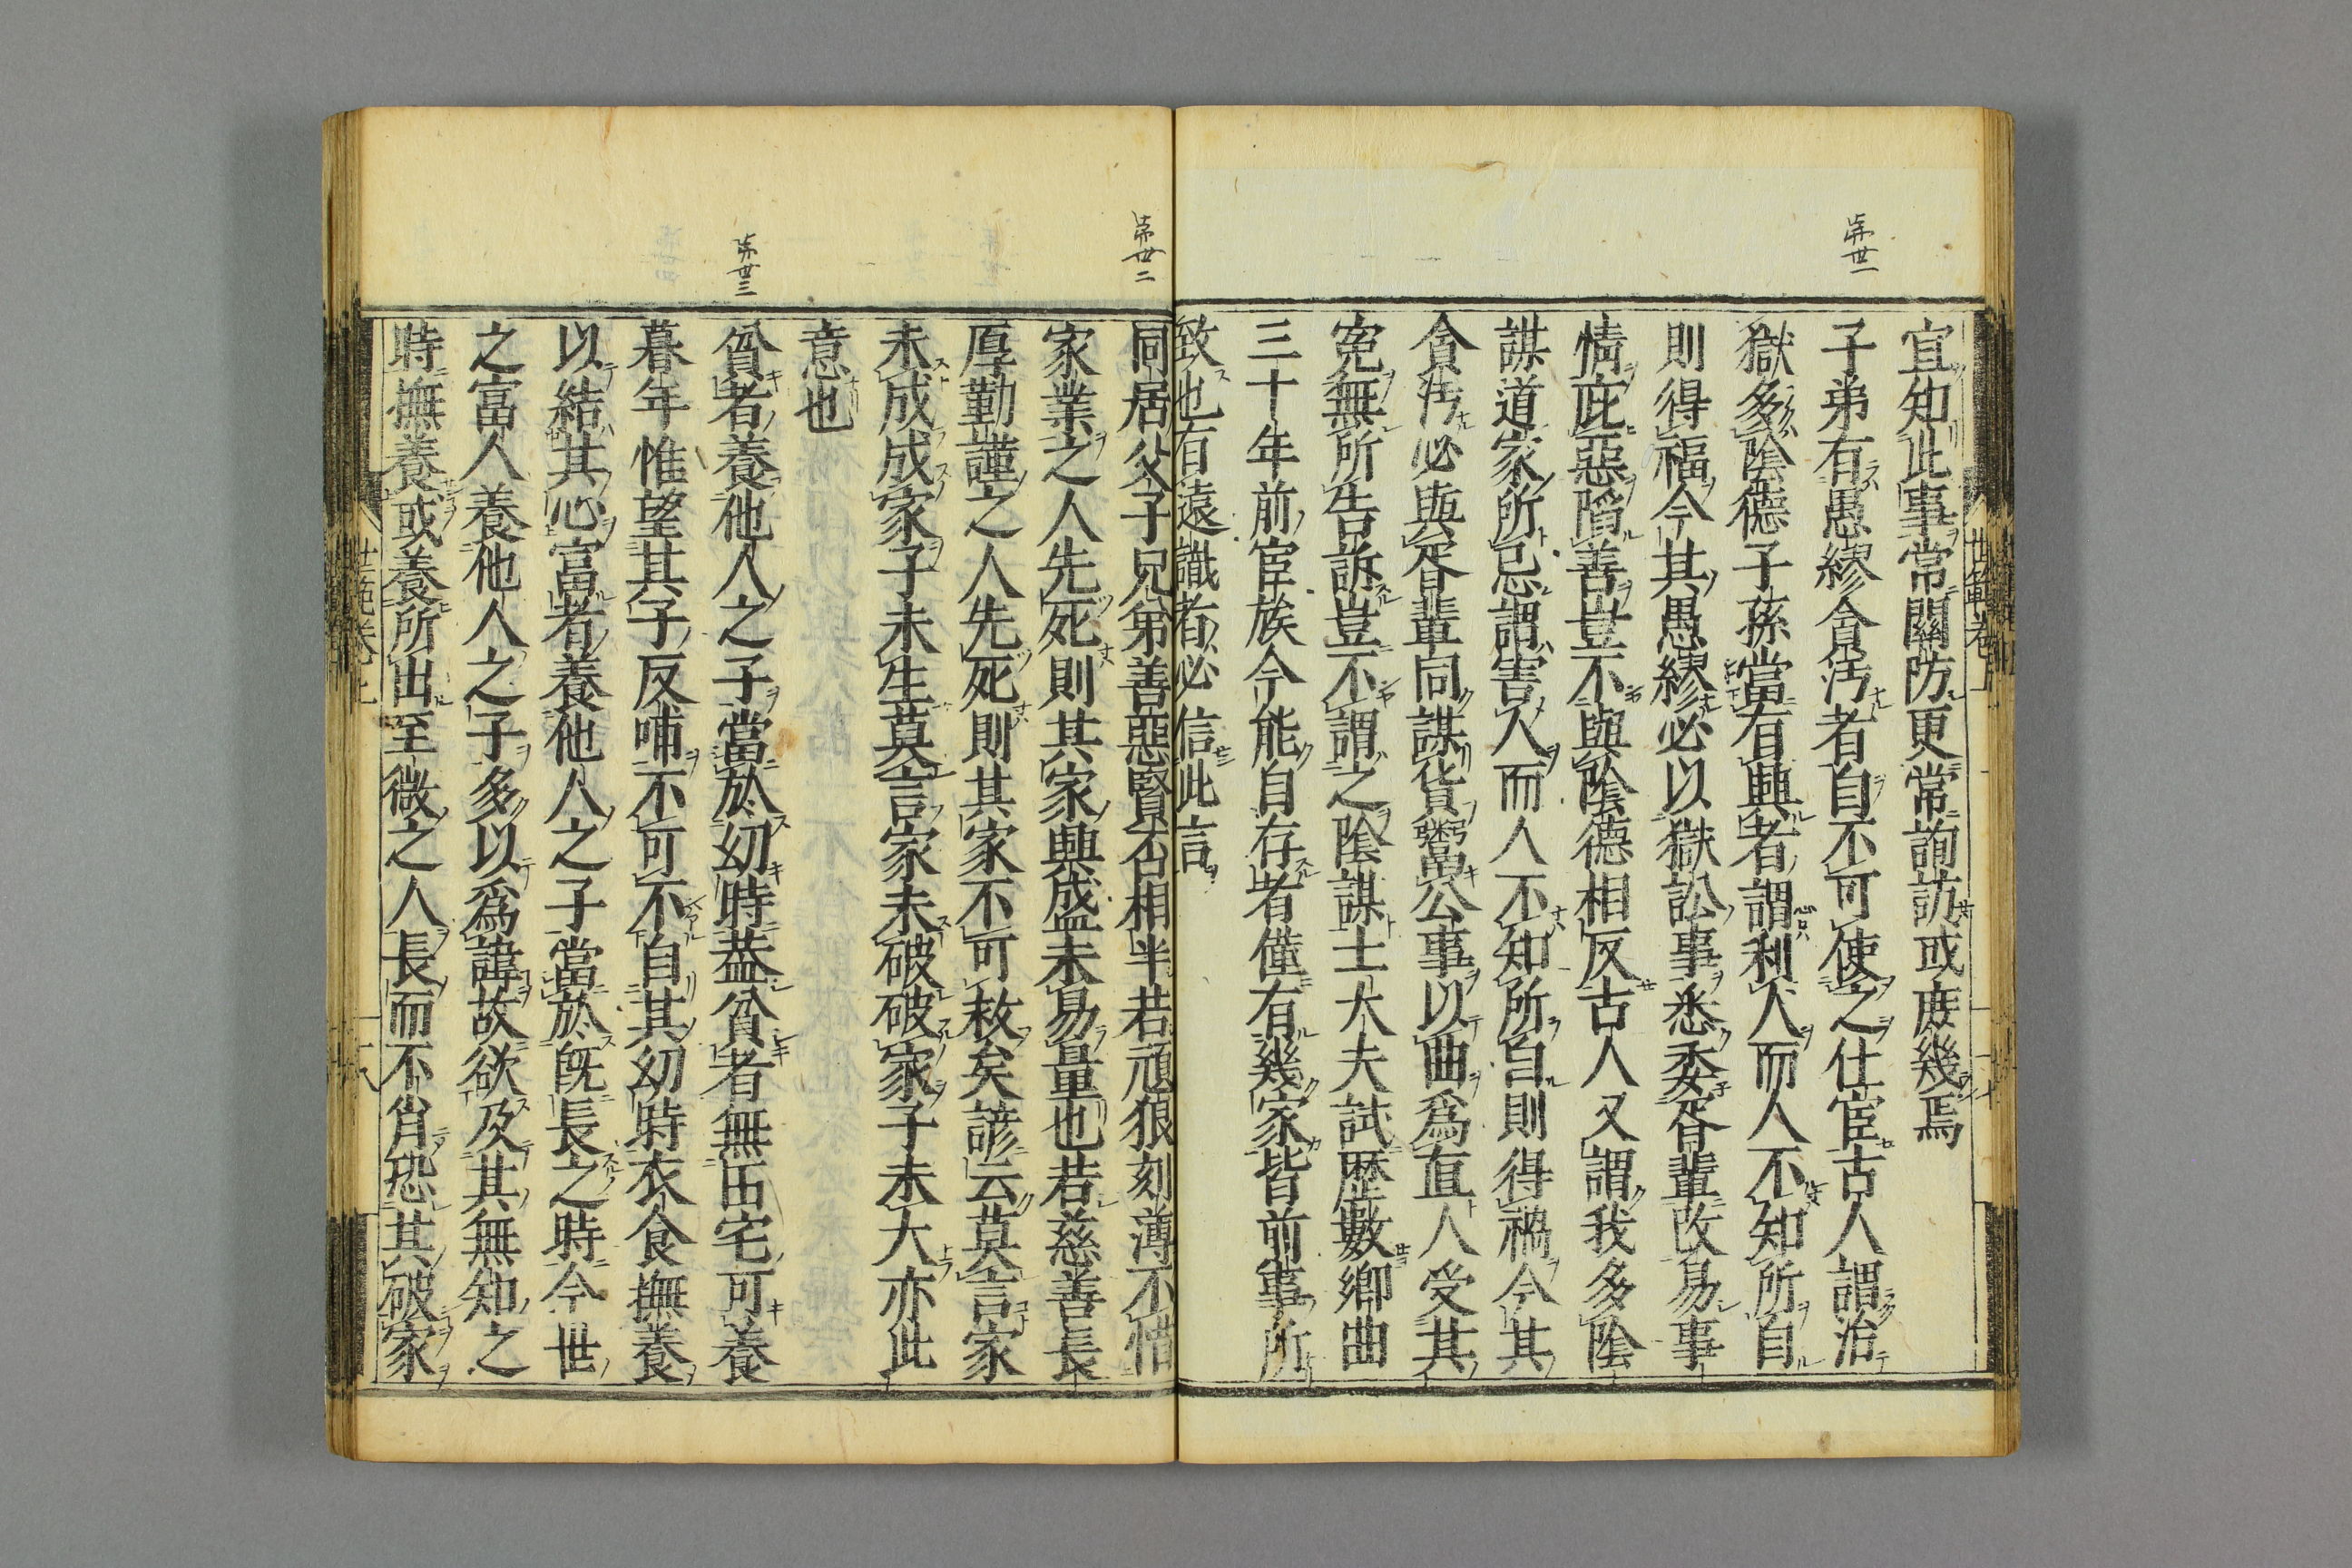 宜知此事常關防更常詢訪或庶幾焉
第卅一
子弟有愚繆貪汚者自不可使之仕宦古人謂治
獄多陰德子孫當有興者謂利人而人不知所自
則得福今其愚繆必以獄訟事悉委胥輩改易事
情庇惡陷善豈不與陰德相反古人又謂我多陰
謀道家所忌謂害人而人不知所自則得禍今其
貪汚必與胥輩同謀貨鬻公事以曲爲直人受其
寃無所告訴豈不謂之陰謀士大夫試歴數鄉曲
三十年前宦族今能自存者僅有幾家皆前事所
致也有遠識者必信此言
第卅二
同居父子兄弟善惡賢否相半若頑狠刻薄不惜
家業之人先死則其家興盛未易量也若慈善長
厚勤謹之人先死則其家不可救矣諺云莫言家
未成成家子未生莫言家未破破家子未大亦此
意也
第卅三
貧者養他人之子當於幼時葢貧者無田宅可養
暮年惟望其子反哺不可不自其幼時衣食撫養
以結其心富者養他人之子當於既長之時今世
之富人養他人之子多以爲諱故欲及其無知之
時撫養或養所出至微之人長而不肖恐其破家
世範卷上